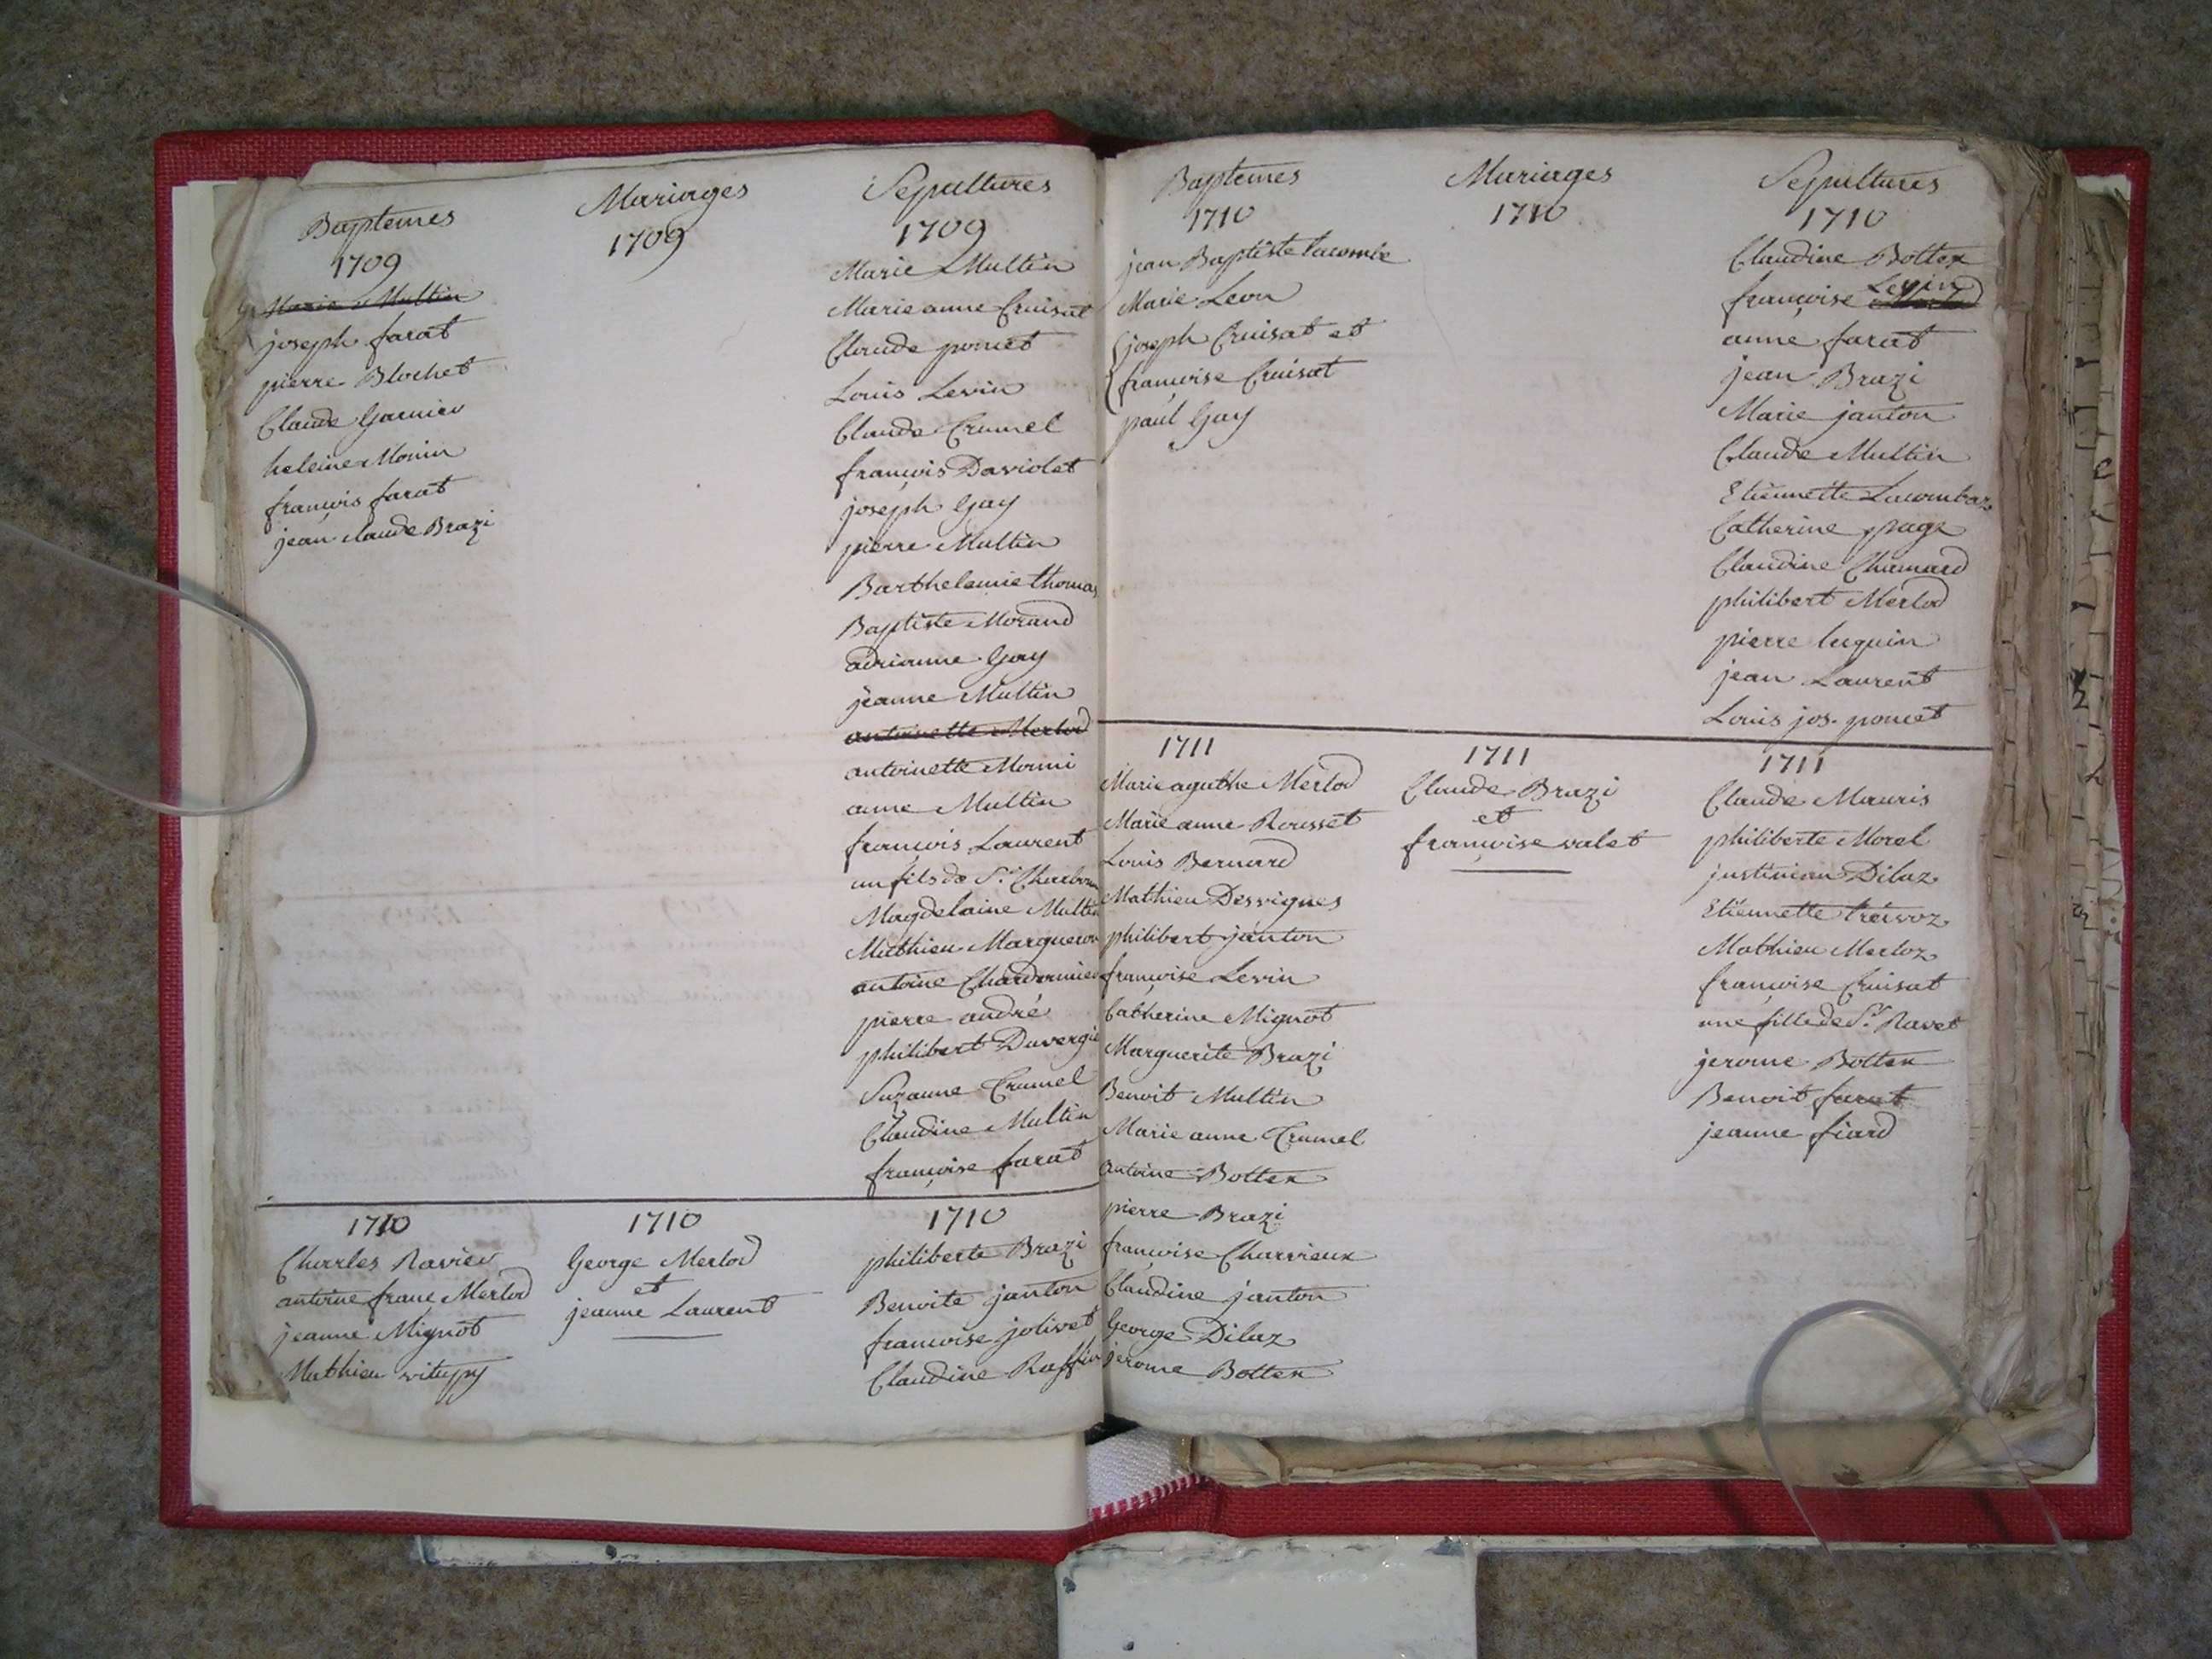 Baptemes
1709
Marie Multin
joseph farat
pierre Blochet
Claude Garnier
heleine Monin
françois farat
jean claude Brazi
Mariages
1709
Sepultures
1709
Marie Multin
Marie anne Cruisat
Claude poncet
Louis Levin
Claude Crumel
françois Daviolet
joseph Gay
pierre Multin
Barthelemie thomas
Baptiste Morand
adrianne Gay
jeanne Multin
antoinette Merlod
antoinette Monni
anne Multin
françois Laurent
un fils de Sr
Magdelaine Multin
Mathieu Margueron
antoine
pierre andré
philibert
Suzanne Crumel
Claudine Multin
françoise farat
1710
Charles Ravier
antoine franc Merlod
jeanne Mignot
Mathieu vituppy
1710
George Merlod
et
jeanne Laurent
1710
philiberte Brazi
Benoite janton
françoise jolivet
Claudine Raffin
Baptemes
1710
jean Baptiste lacombe
Marie Leon
joseph Cruisat et
françoise Cruisat
paul Gay
Mariages
1710
Sepultures
1710
Claudine Bottex
françoise Levin
anne farat
jean Brazi
Marie janton
Claude Multin
Etiennette
Catherine page
Claudine Chanard
philibert Merlod
pierre luquin
jean Laurent
Louis jos. poncet
1711
Marie agathe Merlod
Marie anne Rousset
Louis Bernard
Mathieu Desvignes
philibert janton
françoise Levin
Catherine Mignot
Marguerite Brazi
Benoit Multin
Marie anne Crumel
antoine Bottex
pierre Brazi
françoise Charvieux
Claudine janton
George Dilaz
jerome Bottex
1711
Claude Brazi
et
françoise valet
1711
Claude Mauris
philiberte Morel
justinian Dilaz
Etiennette trésvoz
Mathieu Merloz
françoise Cruisat
une fille de Sr Ravet
jerome Bottex
Benoit farat
jeanne fiard